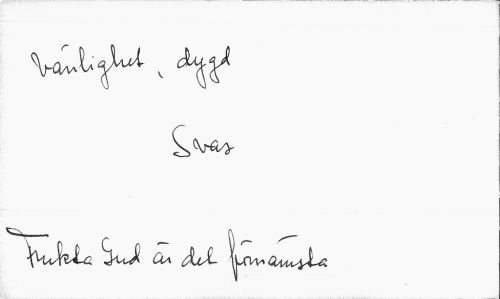 Vänlighet, dygd
Svar
Frukta Gud är det förnämsta